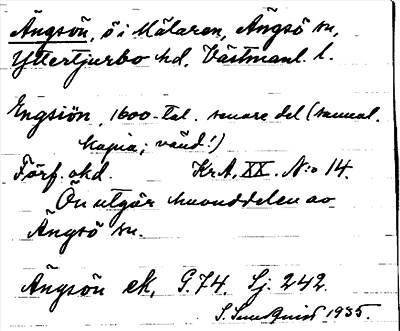 Ängsön, ö i Mälaren, Ängsö sn,
Yttertjurbo hd, Västmanl. l.
Engsiön, 1600-tal. senare del (samml.
kopia; vänd!)
Förf. okd. Kr.A. XX. N:o 14.
Ön utgör huvuddelen av
Ängsö sn.
Ängsön ek, G.74. Sj. 242.
S. Sundquist 1935.